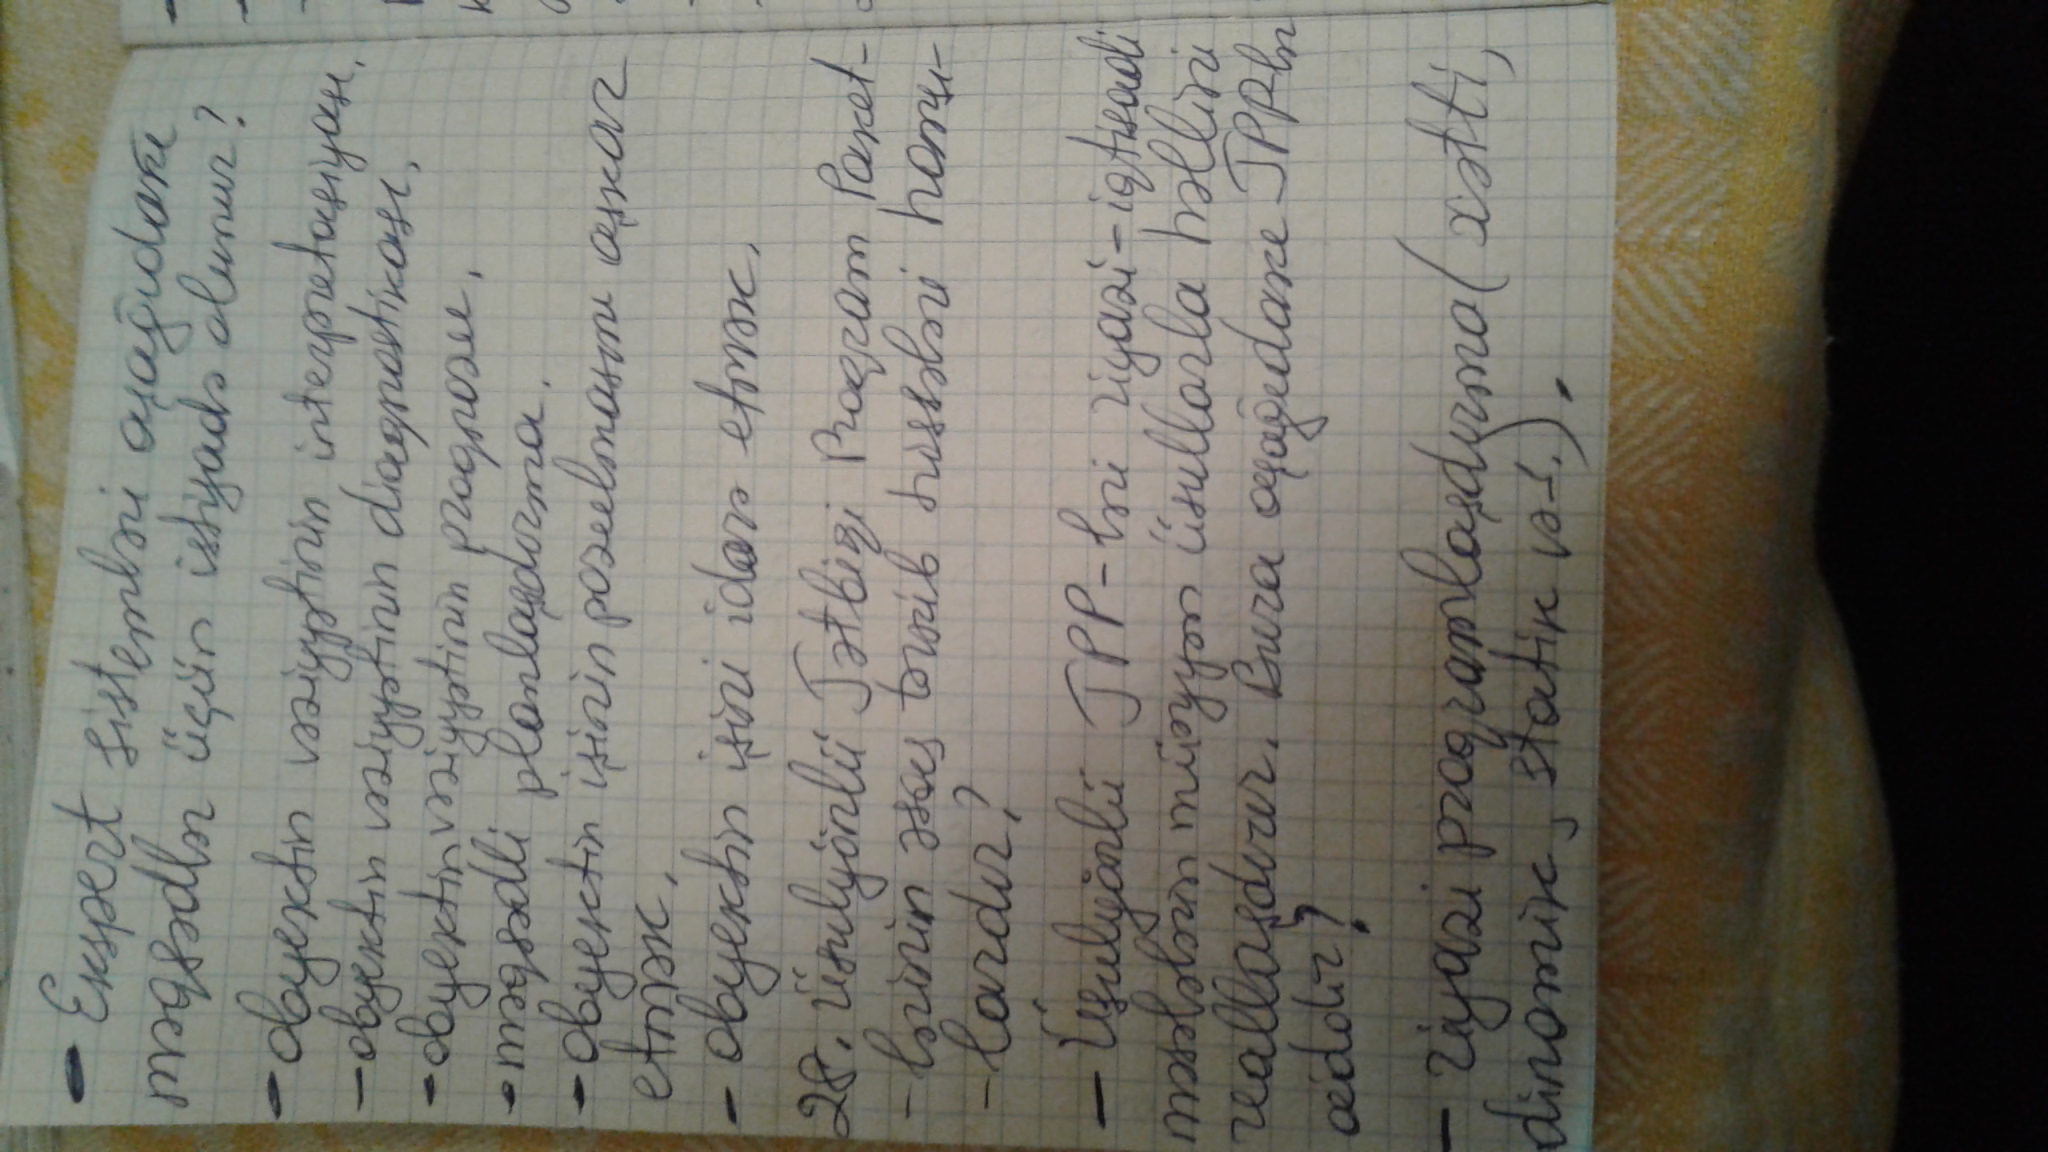 - Ekspert sistemləri aşağıdakı
məqsədlər üçün istifadə olunur?
- obyektin vəziyyətinin interpretasiyası,
- obyektin vəziyyətinin diagnostikası,
- obyektin vəziyyətinin proqnozu,
- məqsədli planlaşdırma,
- obyektin işinin pozulmasını aşkar
etmək,
- obyektin işini idarə etmək,
28. Üsulyönlü Tətbiqi Proqram Paket-
-lərinin əsas tərkib hissələri hansı-
-lardır?
- Üsulyönlü TPP-ləri riyazi-iqtisadi
məsələlərin müəyyən üsullarla həllini
reallaşdırır. Bura aşağıdakı TPP-lər
aiddir?
- riyazi proqramlaşdırma (xətti,
dinamik, statik və s.).